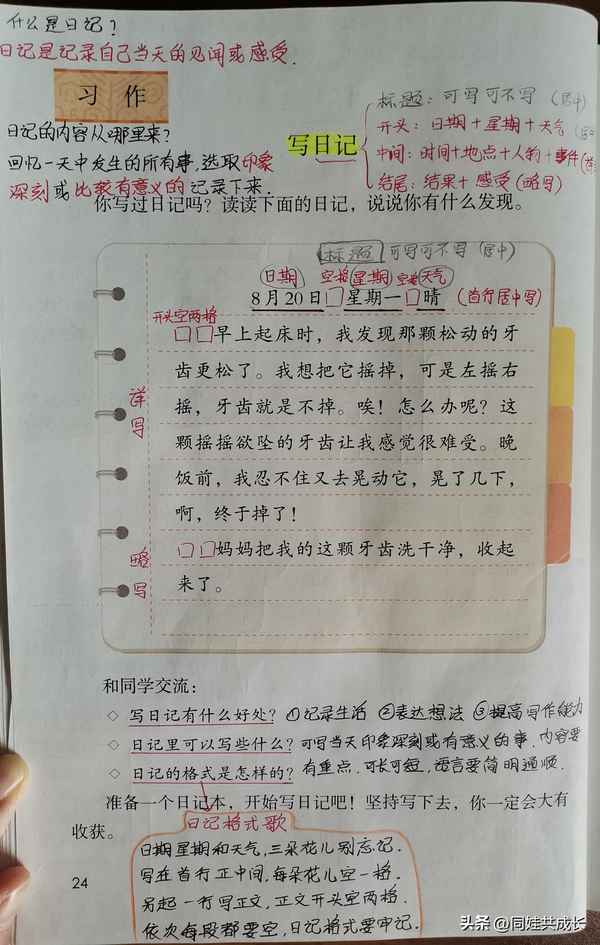 什么是日记？
日记是记录自己当天的见闻或感受.
习 作
日记的内容从哪里来？
回忆一天中发生的所有事，选取印象
深刻或比较有意义的记录下来.
写日记
标题：可写可不写（居中）
开头：日期＋星期＋天气
中间：时间＋地点＋人物＋事件
结尾：结果＋感受（略写）
你写过日记吗？读读下面的日记，说说你有什么发现。
标题 可写可不写（居中）
日期 空格 星期 空格 天气
8月20日□星期一□晴 （首行居中写）
开头空两格
□□早上起床时，我发现那颗松动的牙
齿更松了。我想把它摇掉，可是左摇右
摇，牙齿就是不掉。唉！怎么办呢？这
颗摇摇欲坠的牙齿让我感觉很难受。晚
饭前，我忍不住又去晃动它，晃了几下，
啊，终于掉了！
详写
□□妈妈把我的这颗牙齿洗干净，收起
来了。
略写
和同学交流：
◇ 写日记有什么好处？ ①记录生活 ②表达想法 ③提高写作能力
◇ 日记里可以写些什么？可写当天印象深刻或有意义的事．内容要
◇ 日记的格式是怎样的？ 有重点，可长可短，语言要简明通顺．
准备一个日记本，开始写日记吧！坚持写下去，你一定会大有
收获。
日记格式歌
日期星期和天气，三朵花儿别忘记．
写在首行正中间，每朵花儿空一格．
另起一行写正文，正文开头空两格．
依次每段都要空，日记格式要牢记．
24
头条 @同娃共成长